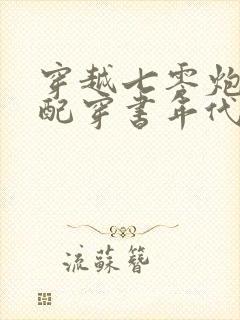 穿越七零炮
配穿书年代
流蘇簪